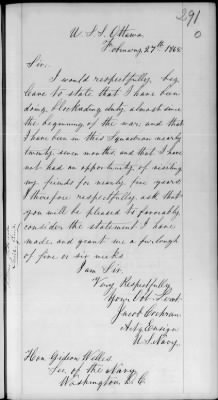 291
U. S. S. Ottawa
February 27th 1865
Sir.
I would respectfully beg
leave to state that I have been
doing blockading duty almost since
the beginning of the war, and that
I have been in this Squadron nearly
twenty seven months, and that I have
not had an opportunity of visiting
my friends for nearly five years
I therefore respectfully ask that
you will be pleased to favorably
consider the statement I have
made, and grant me a furlough
of five or six weeks
I am Sir.
Very Respectfully
Your Obt. Servt.
Jacob Cochran
Actg Ensign
U. S. Navy.
Hon. Gideon Welles
Sec. of the Navy
Washington D. C.